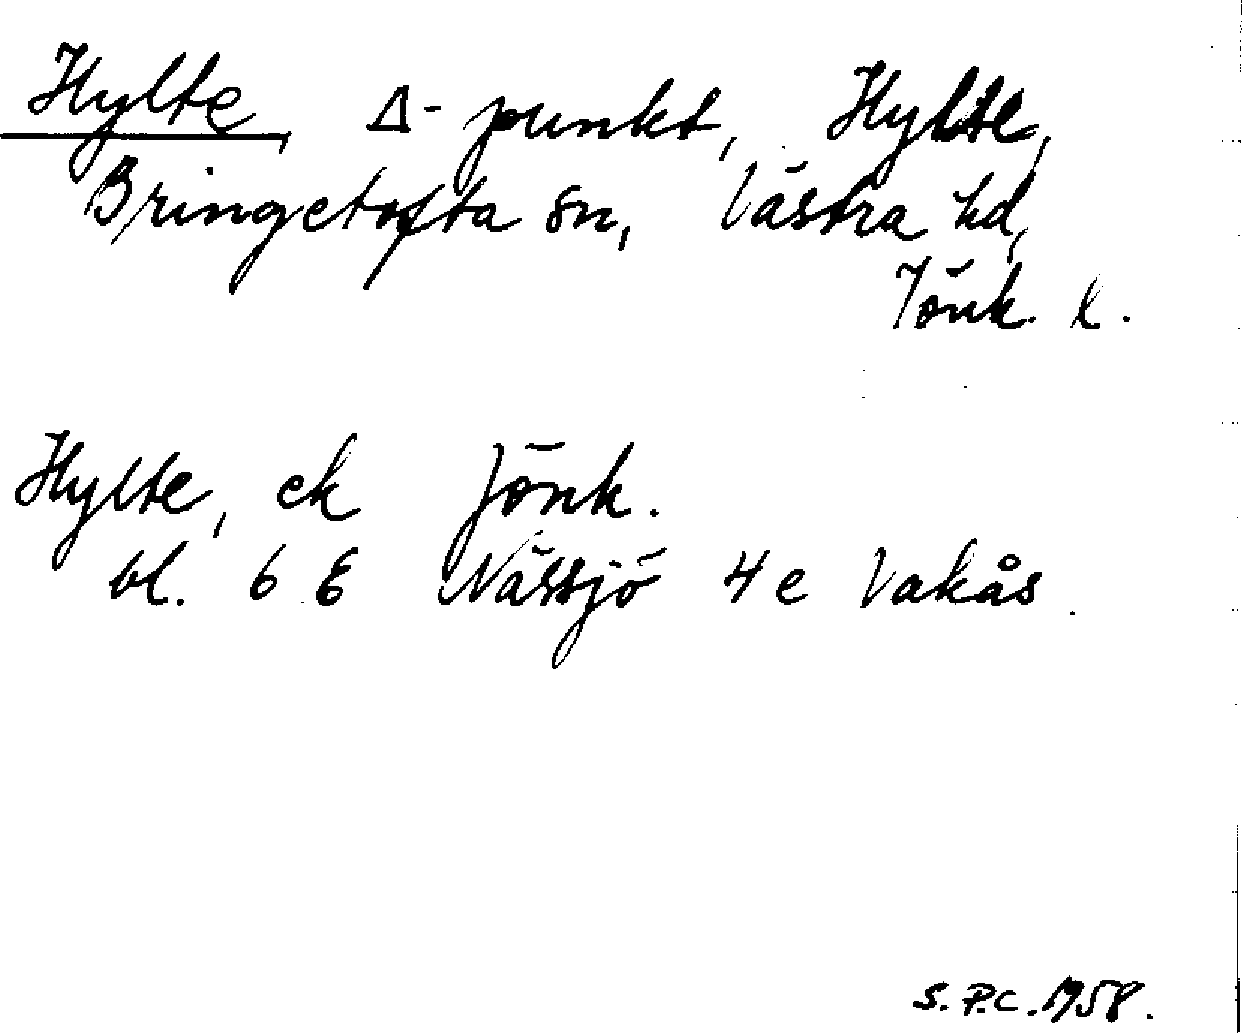 Hylte, Δ-punkt, Hylte,
Bringetofta sn, Västra hd,
Jönk. l.
Hylte, ek Jönk.
bl. 6 E Nässjö 4 e Vakås.
S.P.C. 1958.